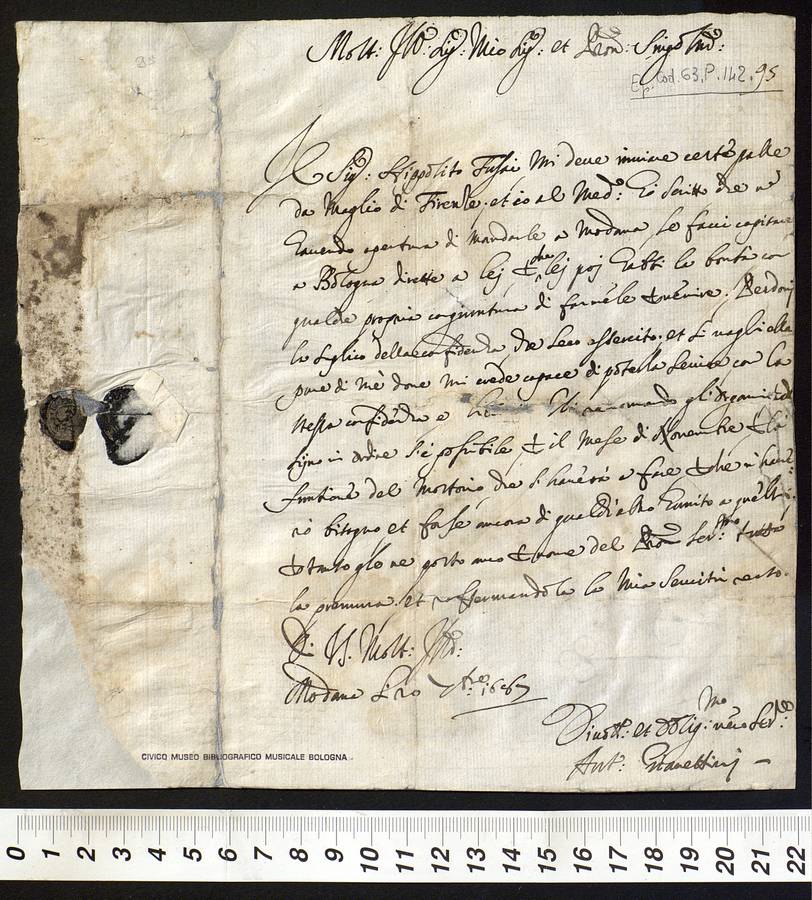 Molt: Ill: Sig: Mio Sig: et Pron: Singol.mo
Ep. Cod. 63, P. 142, 95
Il Sig: Hippolito Fusai mi deve inviare certe palle
da Maglio di Firenze, et io al Med: Ho scritto che n
havendo apertura di mandarle a Modana le facci capitare
a Bologna dirette a lej che lej poj habbi la bontà con
qualche propria cogiuntura di farmele p venire. Perdonj
la siglico della confidenza che seco essercito, et si vaglj ella
pure di mè dove mi crede capace di poterla servire con la
stessa confidenza e Gli racomando gli organi che
sijno in ordine s'è possibile p il mese di Novembre p la
funtione del Mortorio che si haverà a fare p che n'have
rò bisogno et forse ancora di qualch'altro unito a quelli
p tanto gle ne porto anco p nome del Pron Ser.mo tutta
la premura. et raffermandola la Mia Servitù resto.
D: VS. Molt: Ill:
Modana li 20 1686
Divot: et Oblig.mo vero Ser.
Ant: Gianettinj
CIVICO MUSEO BIBLIOGRAFICO MUSICALE BOLOGNA
0 1 2 3 4 5 6 7 8 9 10 11 12 13 14 15 16 17 18 19 20 21 22